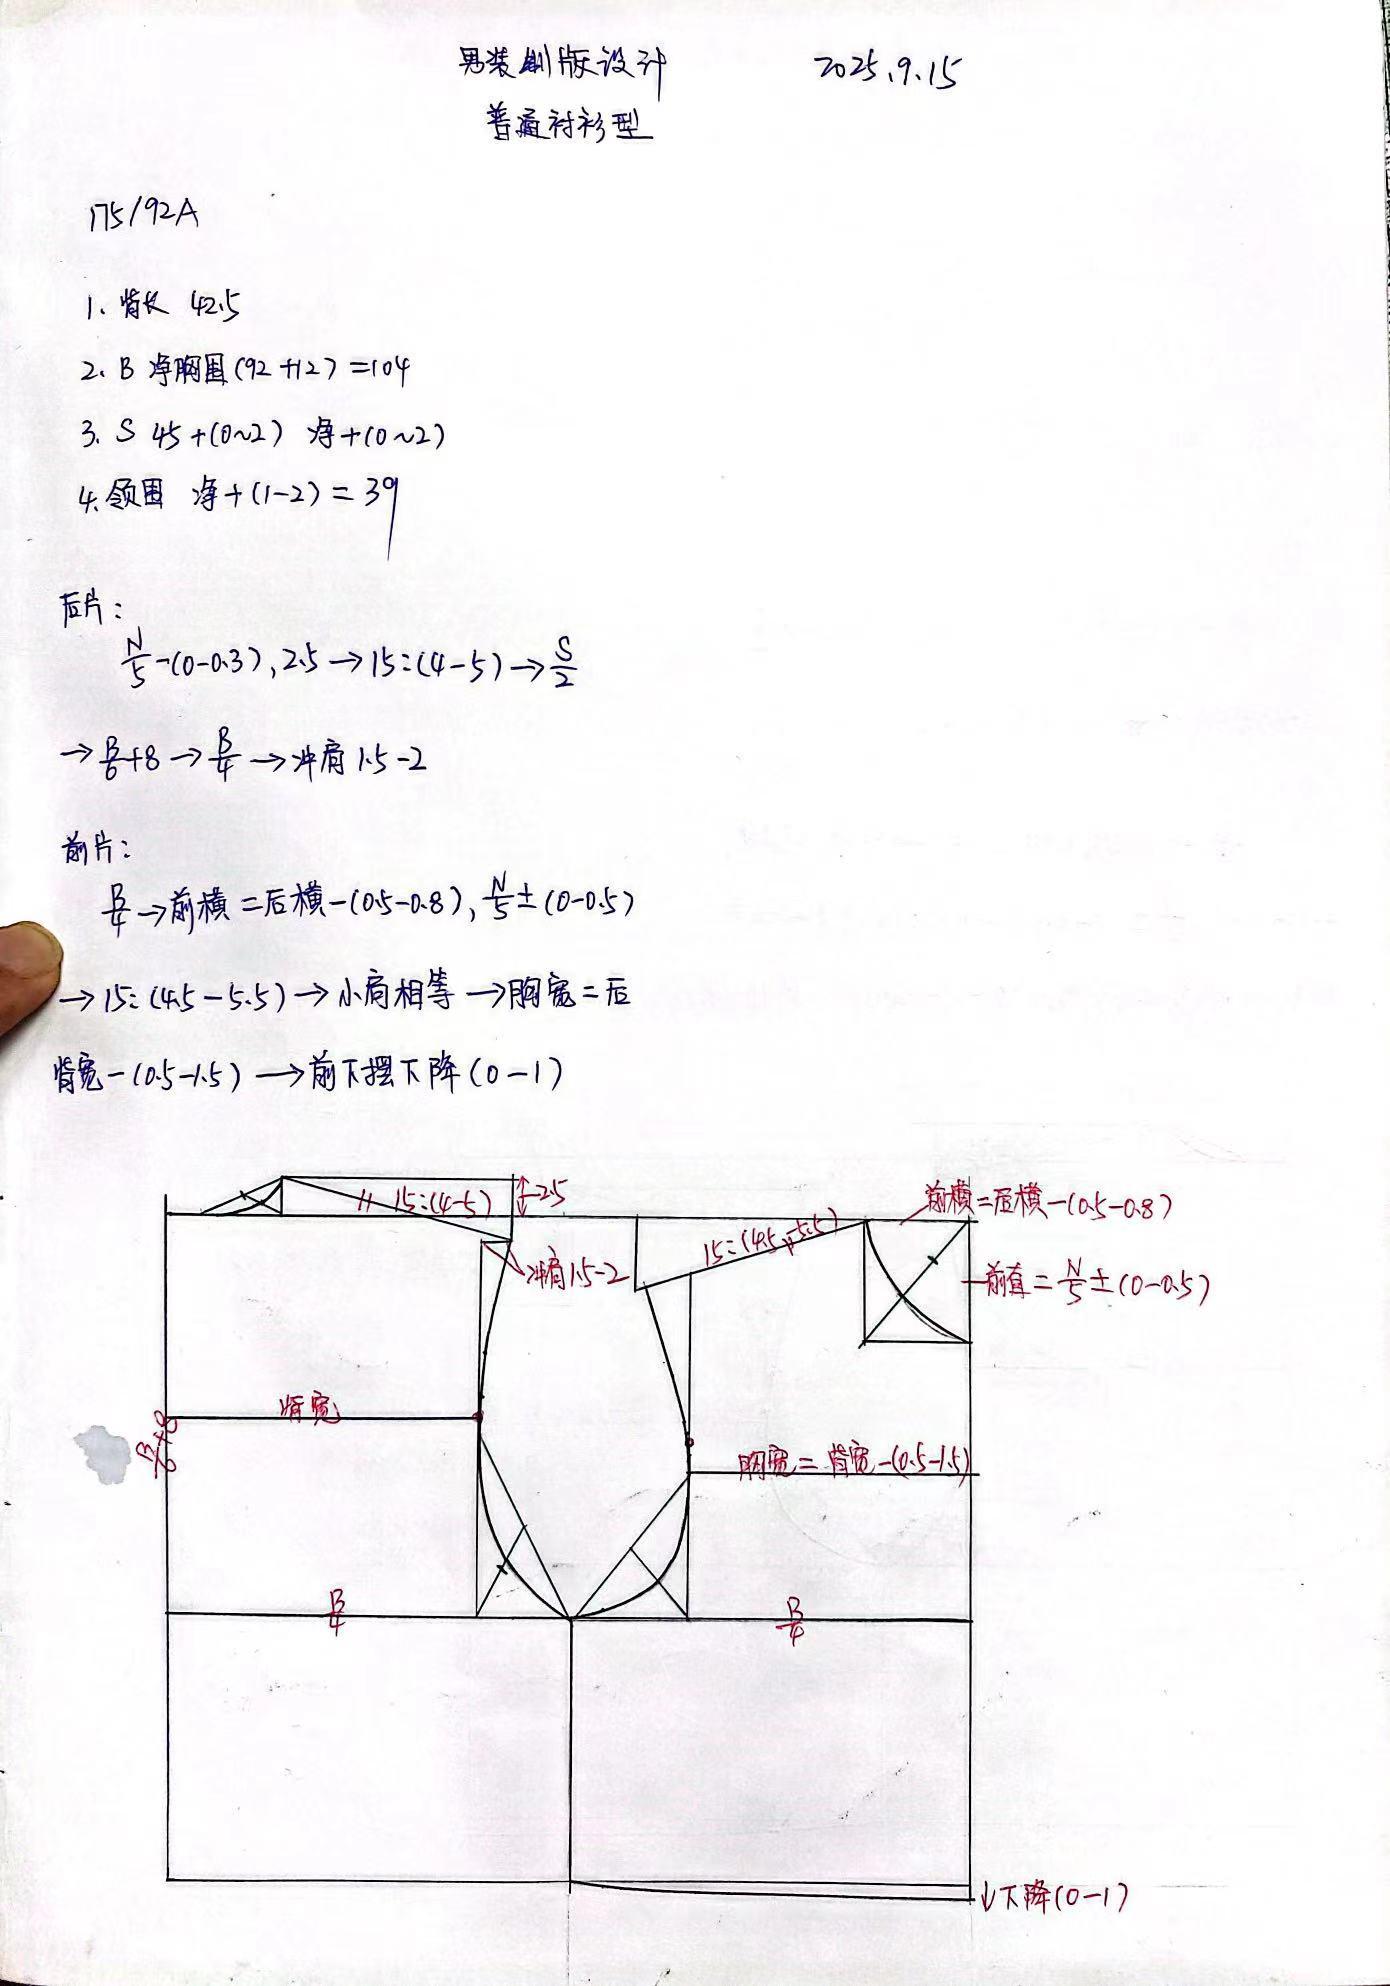 男装制版设计 2025.9.15
普通衬衫型
175/92A
1、背长 42.5
2、B 净胸围(92+12)=104
3、S 45+(0~2) 净+(0~2)
4、领围 净+(1-2)=39
后片:
N/5-(0-0.3),2.5→15:(4-5)→S/2
→B/6+8→B/4→冲肩1.5-2
前片:
B/4→前横=后横-(0.5-0.8),N/5±(0-0.5)
→15:(4.5-5.5)→小肩相等→胸宽=后
背宽-(0.5-1.5)→前下摆下降(0-1)
15:(4-5)
2.5
前横=后横-(0.5-0.8)
15:(4.5-5.5)
冲肩1.5-2
前直=N/5±(0-0.5)
背宽
B/6+8
胸宽=背宽-(0.5-1.5)
B/4
B/4
↓下降(0-1)